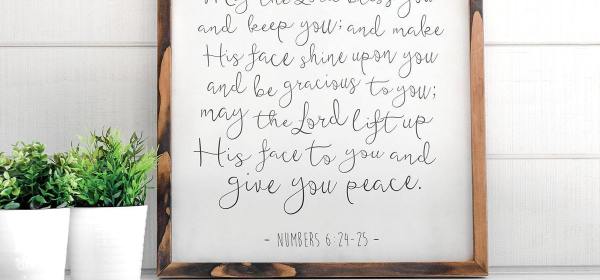 May the Lord bless you
and keep you; and make
His face shine upon you
and be gracious to you;
may the Lord lift up
His face to you and
give you peace.
- NUMBERS 6:24-25 -